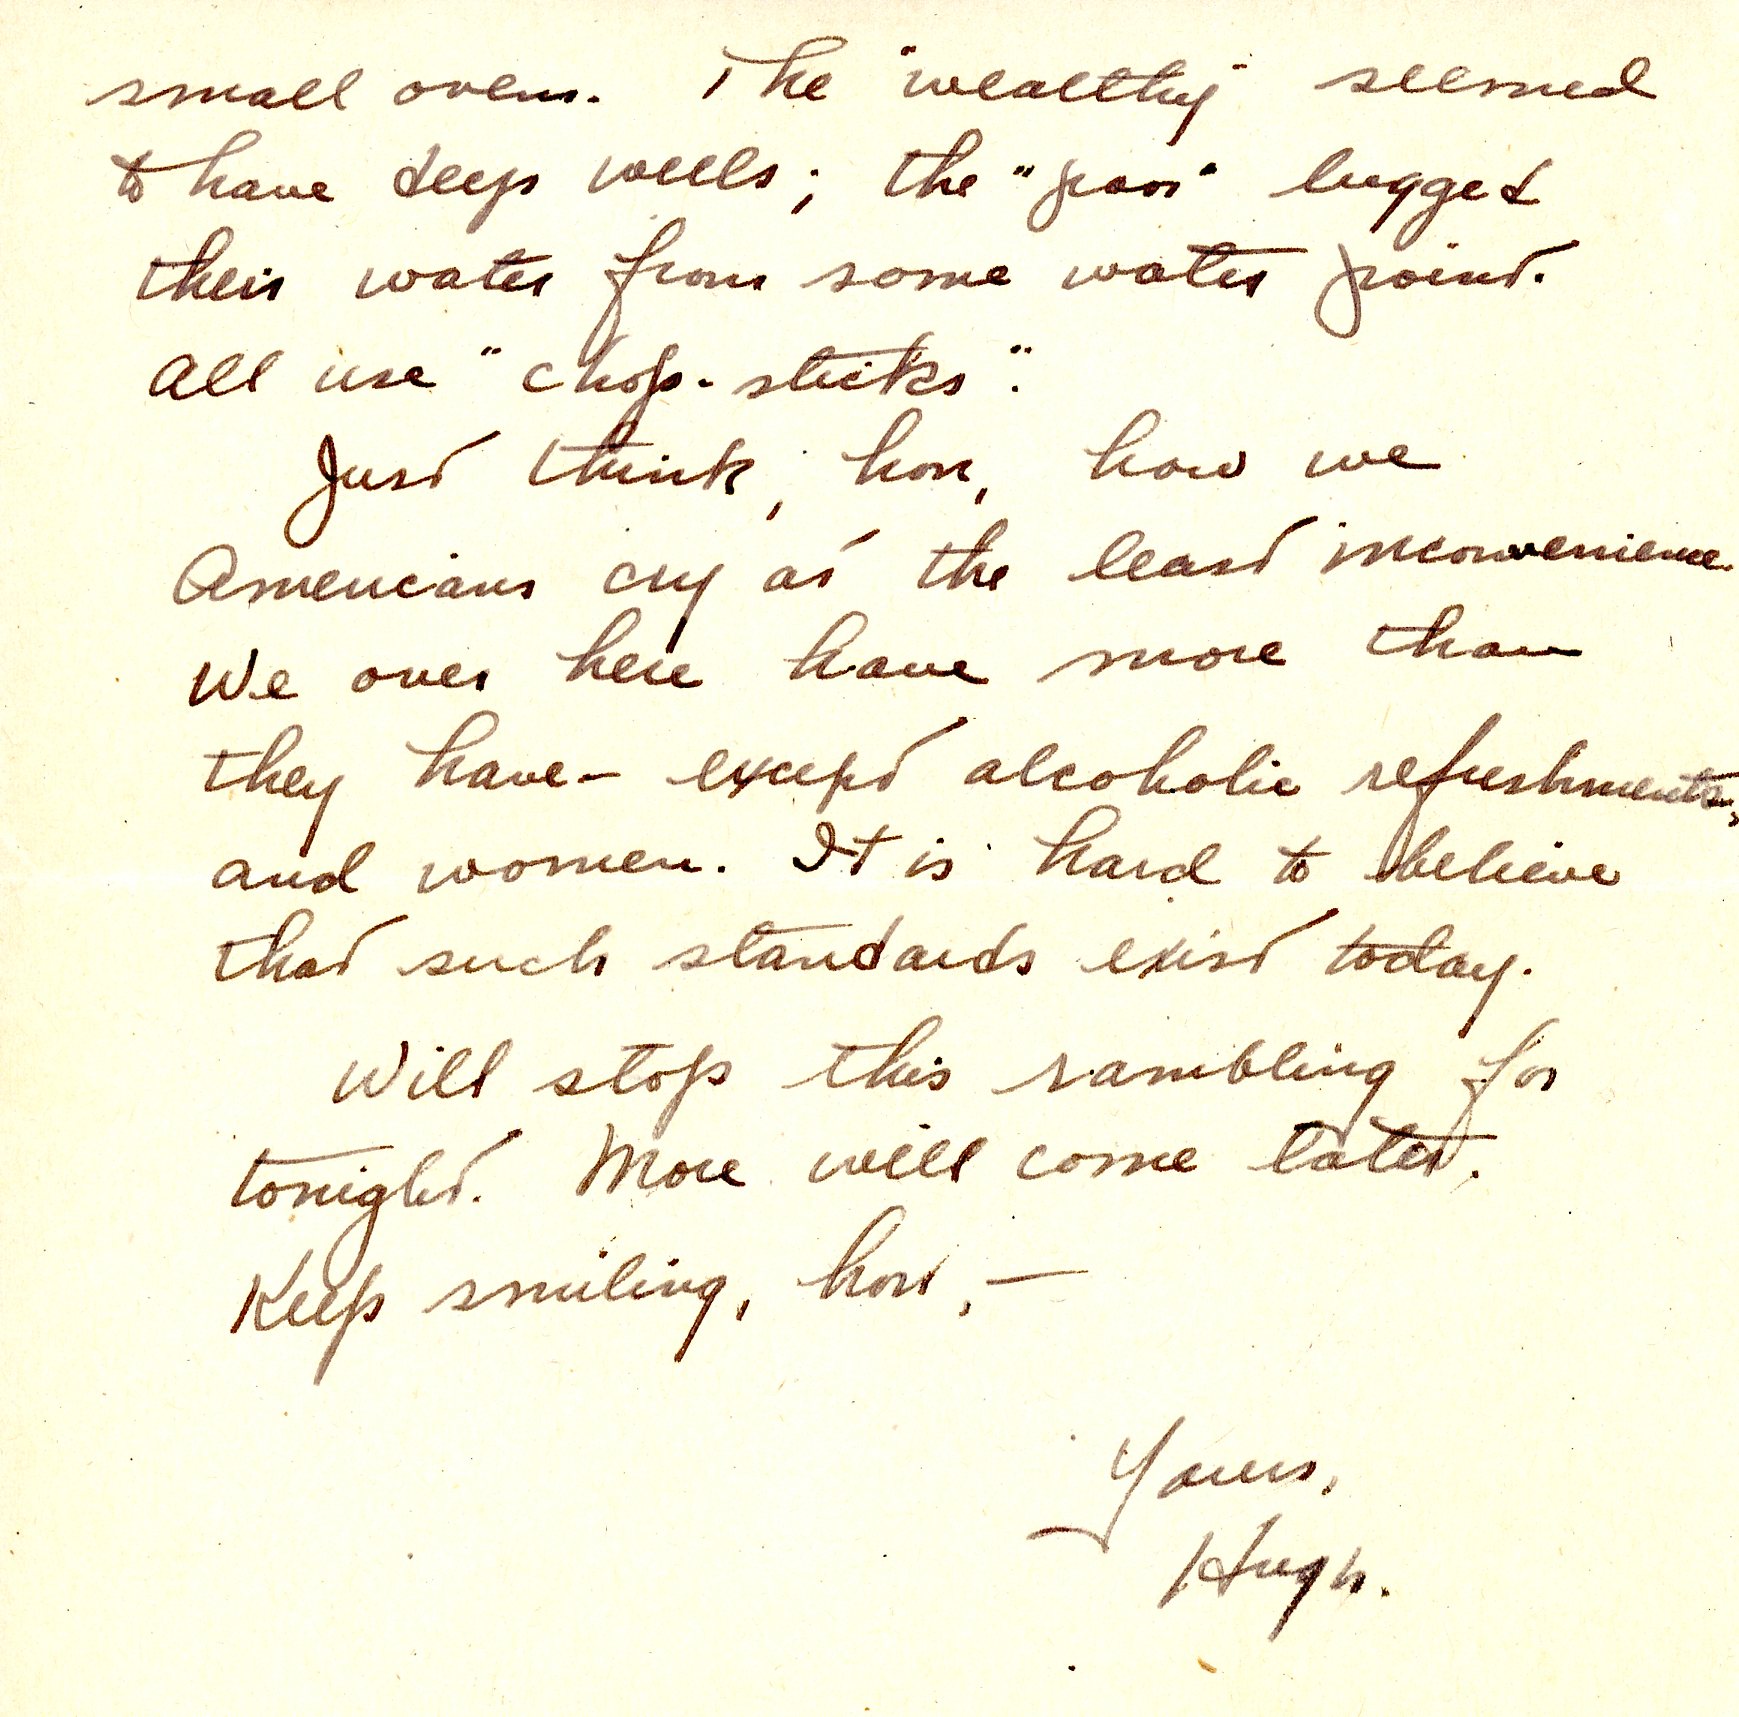 small oven. The "wealthy" seemed
to have deep wells; the "poor" lugged
their water from some water point.
All use "chop-sticks".
Just think, hon, how we
Americans cry at the least inconvenience.
We over here have more than
they have - except alcoholic refreshments,
and women. It is hard to believe
that such standards exist today.
Will stop this rambling for
tonight. More will come later.
Keep smiling, hon, —
Yours,
Hugh.